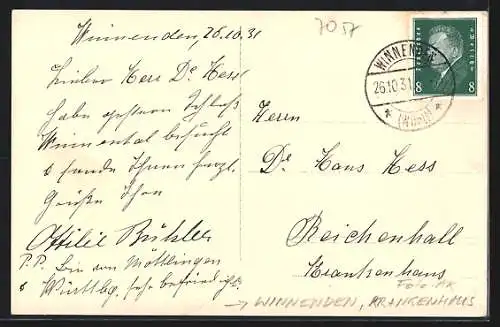 Winnenden, 26.10.31
Lieber Herr Dr Hess!
habe gestern Schloß
Winnental besucht
& sende Ihnen herzl.
Grüße Ihre
Ottilie Bühler
P.P. Bin von Möttlingen
& Württbg. sehr befriedigt.
7057
WINNENDEN
26.10.31
(WÜRTT)
Deutsches Reich
8 8
Herrn
Dr Hans Hess
Reichenhall
Krankenhaus
Foto-AK
→ WINNENDEN, KRANKENHAUS